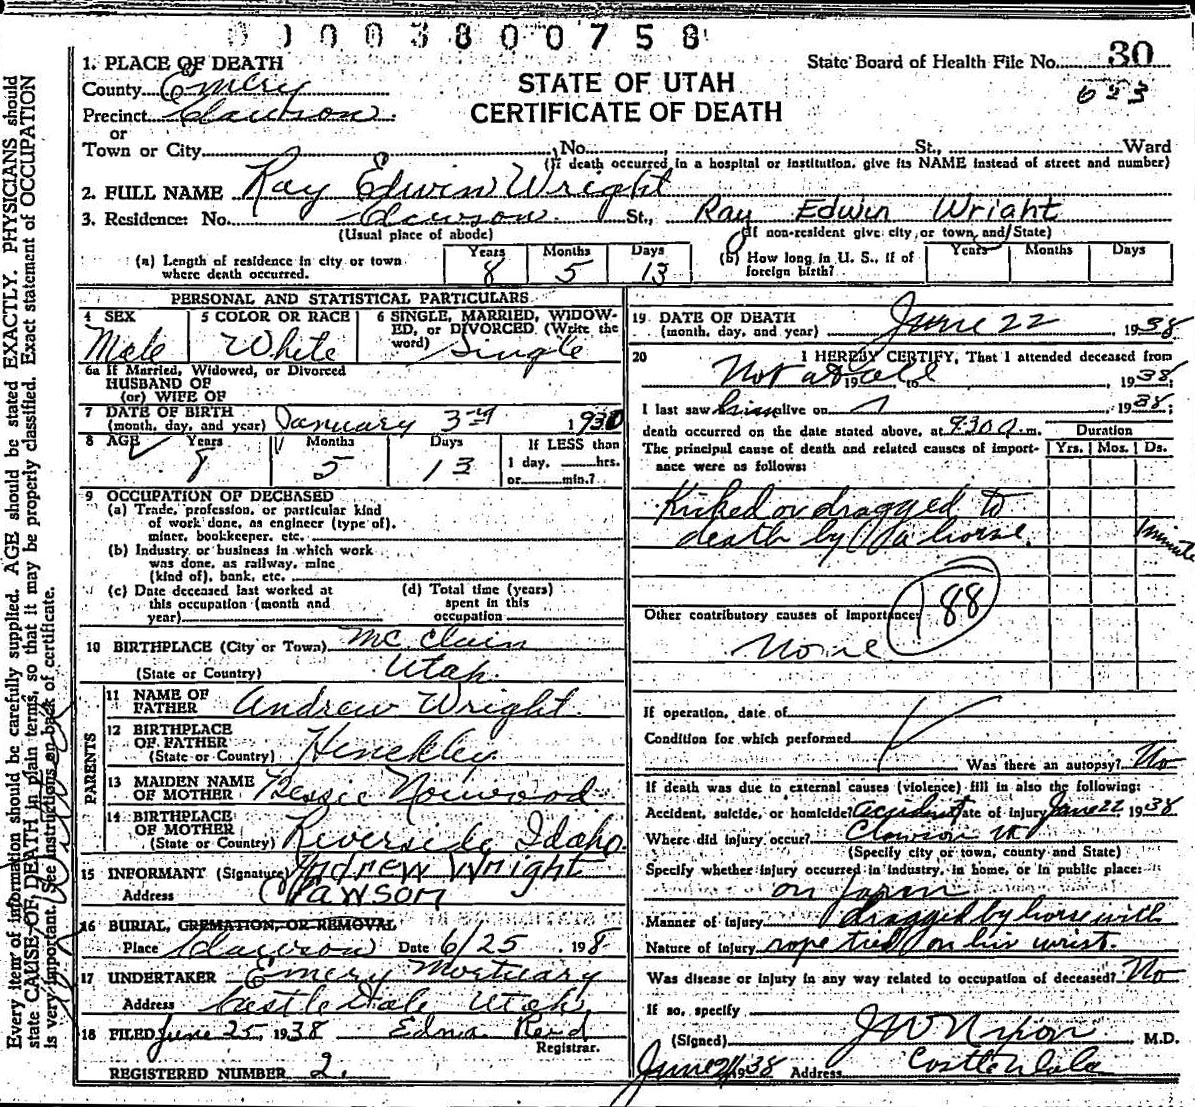 0 0 0 0 3 8 0 0 7 5 8
1. PLACE OF DEATH
County Emery
Precinct Clawson
or
Town or City No. St., Ward
(If death occurred in a hospital or institution, give its NAME instead of street and number)
State Board of Health File No. 30
623
STATE OF UTAH
CERTIFICATE OF DEATH
2. FULL NAME Ray Edwin Wright
3. Residence: No. Clawson St., Ray Edwin Wright
(Usual place of abode) (If non-resident give city or town and State)
(a) Length of residence in city or town where death occurred. Years 8 Months 5 Days 13
(b) How long in U. S., if of foreign birth? Years Months Days
PERSONAL AND STATISTICAL PARTICULARS
4 SEX Male
5 COLOR OR RACE White
6 SINGLE, MARRIED, WIDOWED, or DIVORCED (Write the word) Single
6a If Married, Widowed, or Divorced
HUSBAND OF
(or) WIFE OF
7 DATE OF BIRTH
(month, day, and year) January 3rd 1930
8 AGE Years 8 Months 5 Days 13 If LESS than
1 day, hrs.
or min.?
9 OCCUPATION OF DECEASED
(a) Trade, profession, or particular kind
of work done, as engineer (type of),
miner, bookkeeper, etc.
(b) Industry or business in which work
was done, as railway, mine
(kind of), bank, etc.
(c) Date deceased last worked at
this occupation (month and
year)
(d) Total time (years)
spent in this
occupation
10 BIRTHPLACE (City or Town) Mc Clain
(State or Country) Utah.
PARENTS
11 NAME OF
FATHER Andrew Wright.
12 BIRTHPLACE
OF FATHER
(State or Country) Hinckley
13 MAIDEN NAME
OF MOTHER Bessie Norwood
14 BIRTHPLACE
OF MOTHER
(State or Country) Riverside, Idaho.
15 INFORMANT (Signature) Andrew Wright
Address Clawson
16 BURIAL, CREMATION, OR REMOVAL
Place Clawson Date 6/25 198
17 UNDERTAKER Emery Mortuary
Address Castle Dale Utah
18 FILED June 25 1938 Edna Reid
Registrar.
REGISTERED NUMBER 2.
19 DATE OF DEATH
(month, day, and year) June 22 1938
20 I HEREBY CERTIFY, That I attended deceased from
Not at all 19 to , 1938
I last saw him alive on , 1938;
death occurred on the date stated above, at 9:30 a.m.
The principal cause of death and related causes of importance were as follows:
Duration
Yrs. Mos. Ds.
Kicked or dragged to
death by a horse. 1 minute
188
Other contributory causes of importance:
None
If operation, date of
Condition for which performed
Was there an autopsy? No
If death was due to external causes (violence) fill in also the following:
Accident, suicide, or homicide? accident Date of injury June 22 1938
Where did injury occur? Clawson Ut
(Specify city or town, county and State)
Specify whether injury occurred in industry, in home, or in public place:
on farm
Manner of injury dragged by horse with
Nature of injury rope tied on his wrist.
Was disease or injury in any way related to occupation of deceased? No
If so, specify
(Signed) J W Nixon M.D.
June 1938 Address Castle Dale
Every item of information should be carefully supplied. AGE should be stated EXACTLY. PHYSICIANS should
state CAUSE OF DEATH in plain terms, so that it may be properly classified. Exact statement of OCCUPATION
is very important. See instructions on back of certificate.